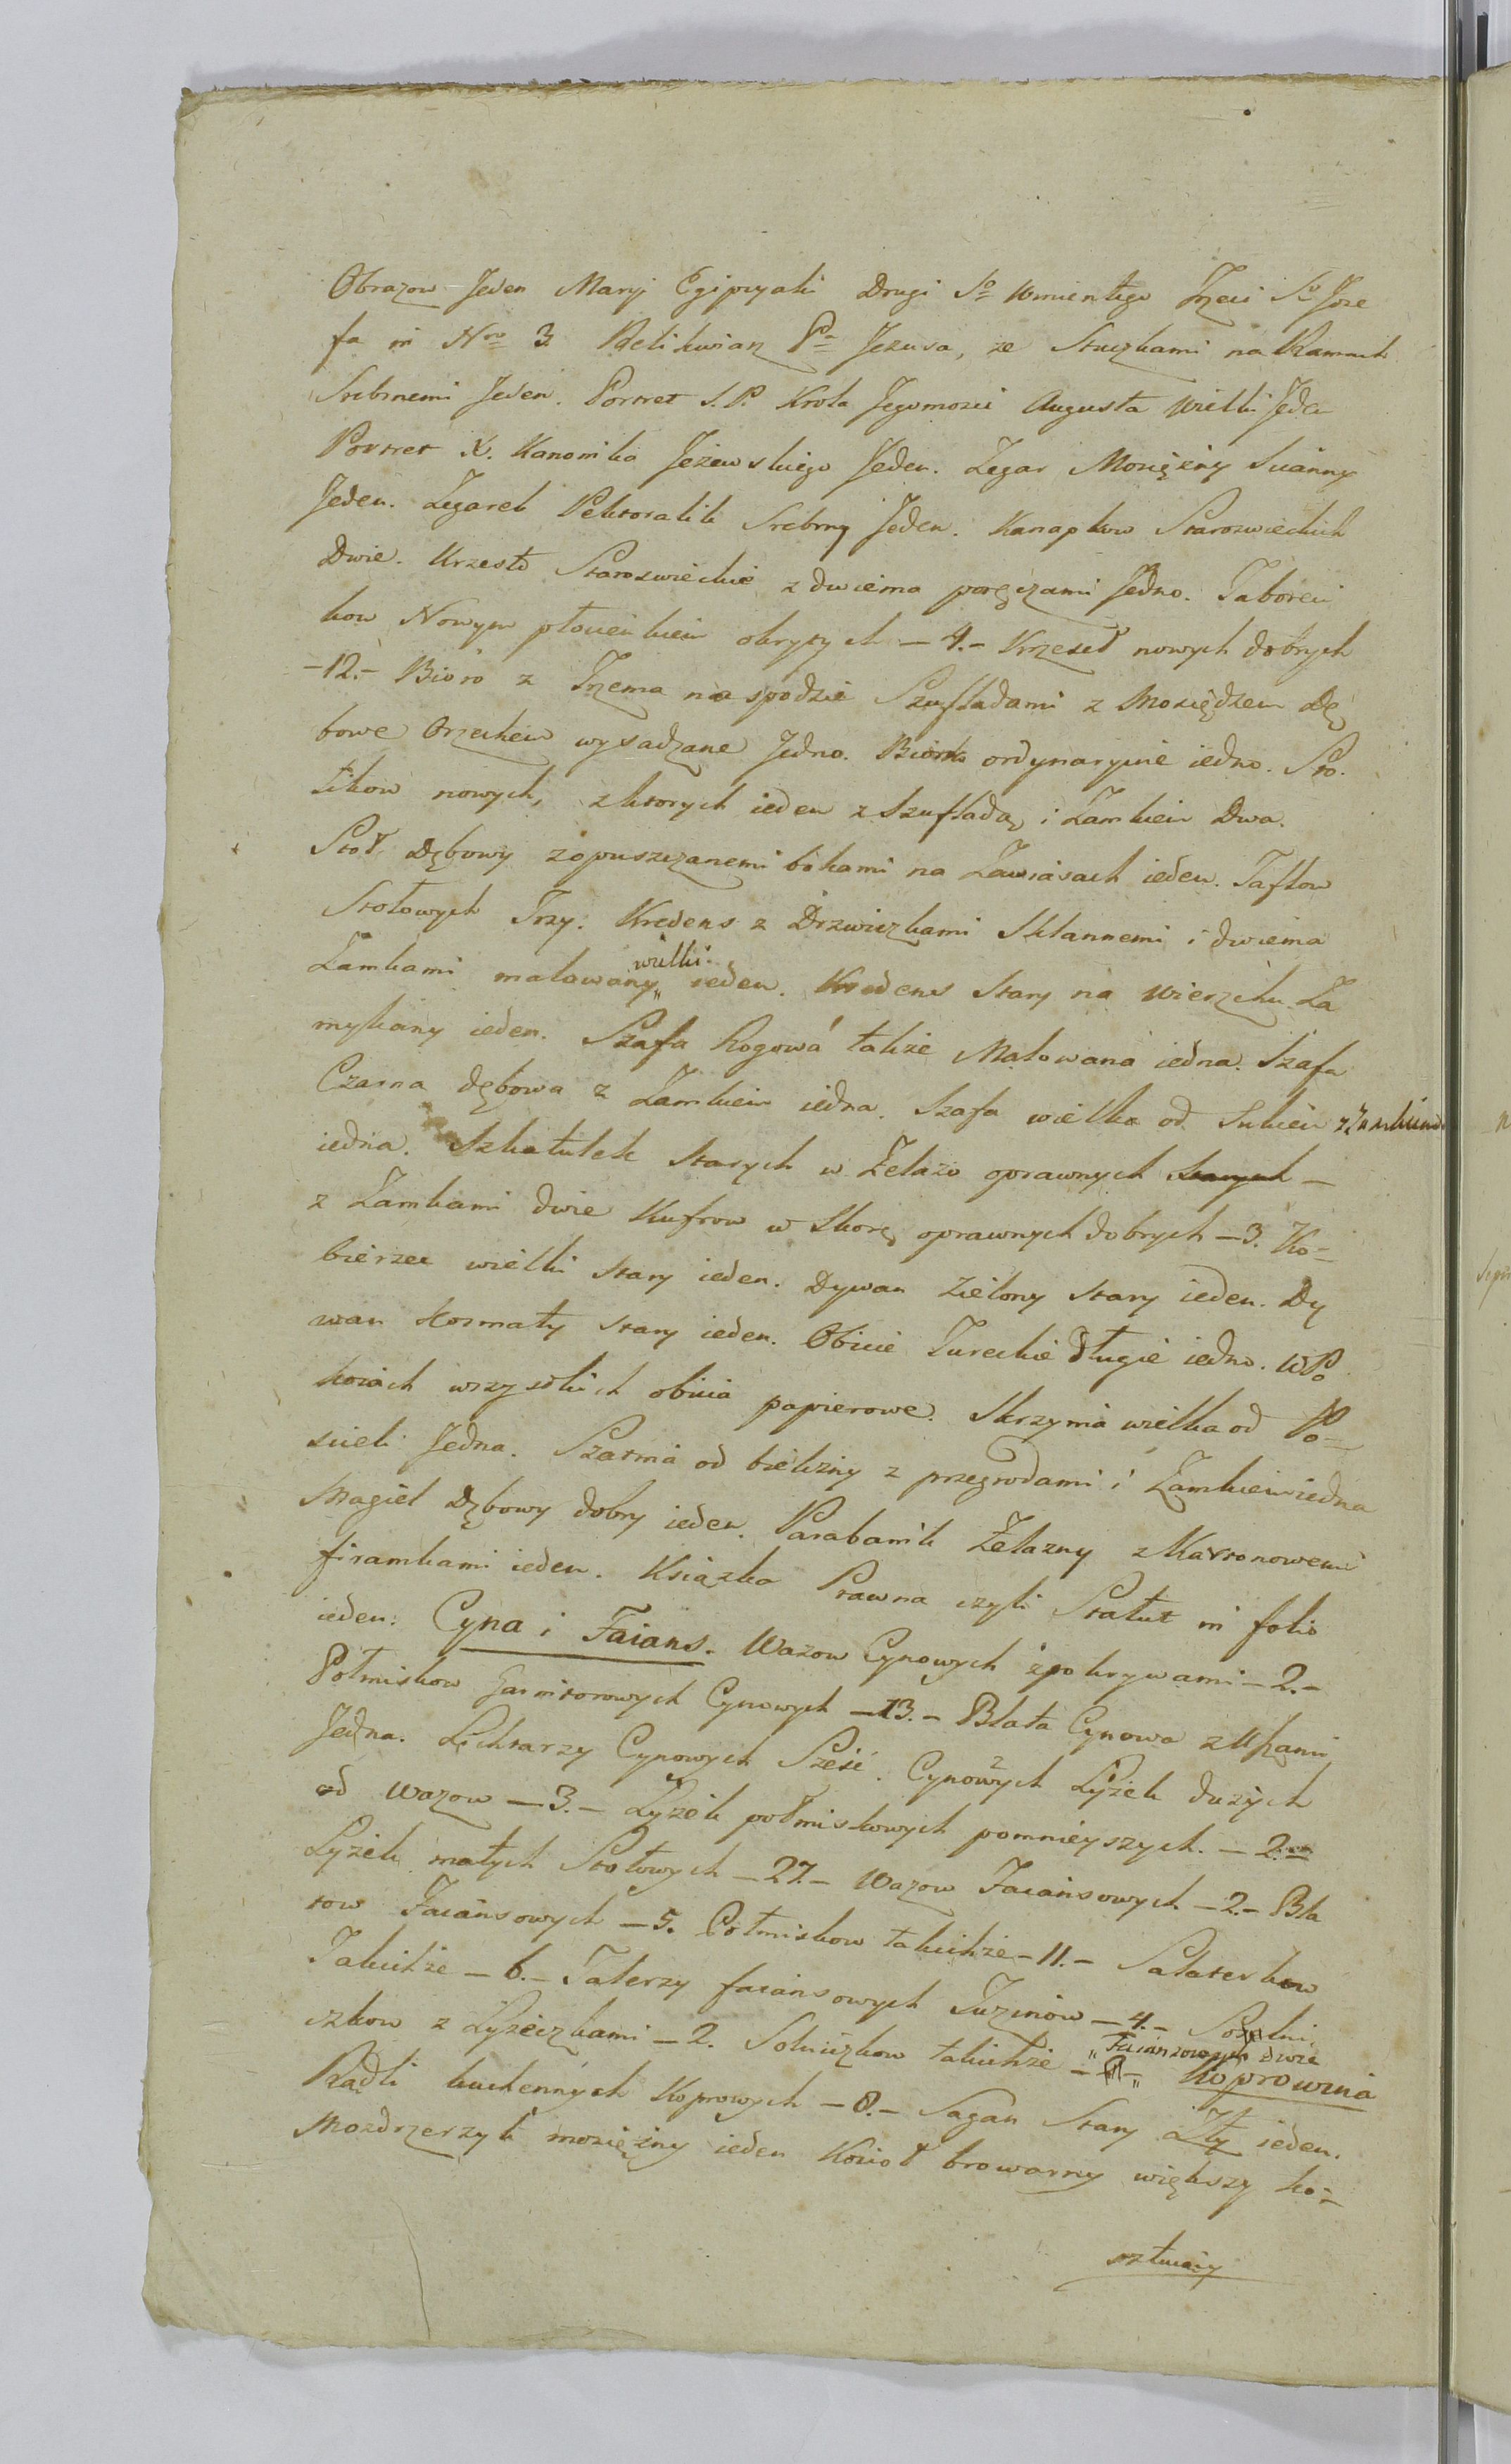 Obrazow Jeden Maryi Egipcyaki Drugi So Wincentego Trzeci So Joze
fa in Nro 3 Relikwiarz Pa Jezusa, ze Stuczkami na Ramach
Srebrnemi Jeden. Portret S. P. Krola Jegomosci Augusta Wielki Jeden
Portret X. Kanonika Jeżewskiego Jeden. Zegar Mosiężny Scianny
Jeden. Zegarek Pektoralik Srebrny Jeden. Kanapkow Staroswieckich
Dwie. Krzesło Staroswieckie z dwiema poręczami Jedno. Taboreci
kow Nowym płocienkiem okrytych – 4.– Krzeseł nowych dobrych
–12.– Bioro z Trzema na spodzie Szufladami z Mosiędzem Dę
bowe Orzechem wysadzane Jedno. Biorko ordynaryine iedno. Sto-
likow nowych, z ktorych ieden z Szufladą i Zamkiem Dwa.
Stoł Dębowy zopuszczanemi bokami na Zawiasach ieden. Taflow
Stołowych Trzy. Kredens z Drzwiczkami Sklannemi i dwiema
Zamkami malowany „ wielki ieden. Kredens stary na Wierzchu Za
mykany ieden. Szafa Rogowa także Malowana iedna. Szafa
Czarna dębowa z Zamkiem iedna. Szafa wielka od Sukien z Zamkiem
iedna. Szkatułek starych w Żelazo oprawnych starych –
z Zamkami dwie Kufrow w Skorę oprawnych dobrych – 3. Ko=
bierzec wielki stary ieden. Dywan Zielony stary ieden. Dy
wan kosmaty stary ieden. Obicie Tureckie Długie iedno. W Po
koiach wszystkich obicia papierowe. Skrzynia wielka od Po=
scieli Jedna. Szatnia od bielizny z przegrodami i Zamkiem iedna
Magiel Dębowy dobry ieden. Parabanik Żelazny z Kartonowemi
firankami ieden. Książka Prawna czyli Statut in folio
ieden: Cyna i Faians. Wazow Cynowych z pokrywami – 2.–
Połmiskow Garniturowych Cynowych – 13.– Blata Cynowa z Uszami
Jedna. Lichtarzy Cynowych Szesć. Cynowych Łyżek dużych
od Wazow – 3.– Łyżek połmiskowych pomnieyszych. – 2.–
Łyżek małych Stołowych – 27.– Wazow Faiansowych – 2.– Bla
tow Faiansowych – 5. Połmiskow takichże – 11.– Salaterkow
Takichże – 6.– Talerzy faiansowych Tuzinow – 4.– Solni
czkow z Łyżeczkami – 2. Solniczkow takichże – „ Faianzowych dwie „ Koprowina
Rądli kuchennych Koprowych – 8.– Sagan Stary Zły ieden.
Mozdzerzyk mosiężny ieden Kocioł browarny większy ko=
sztuiący